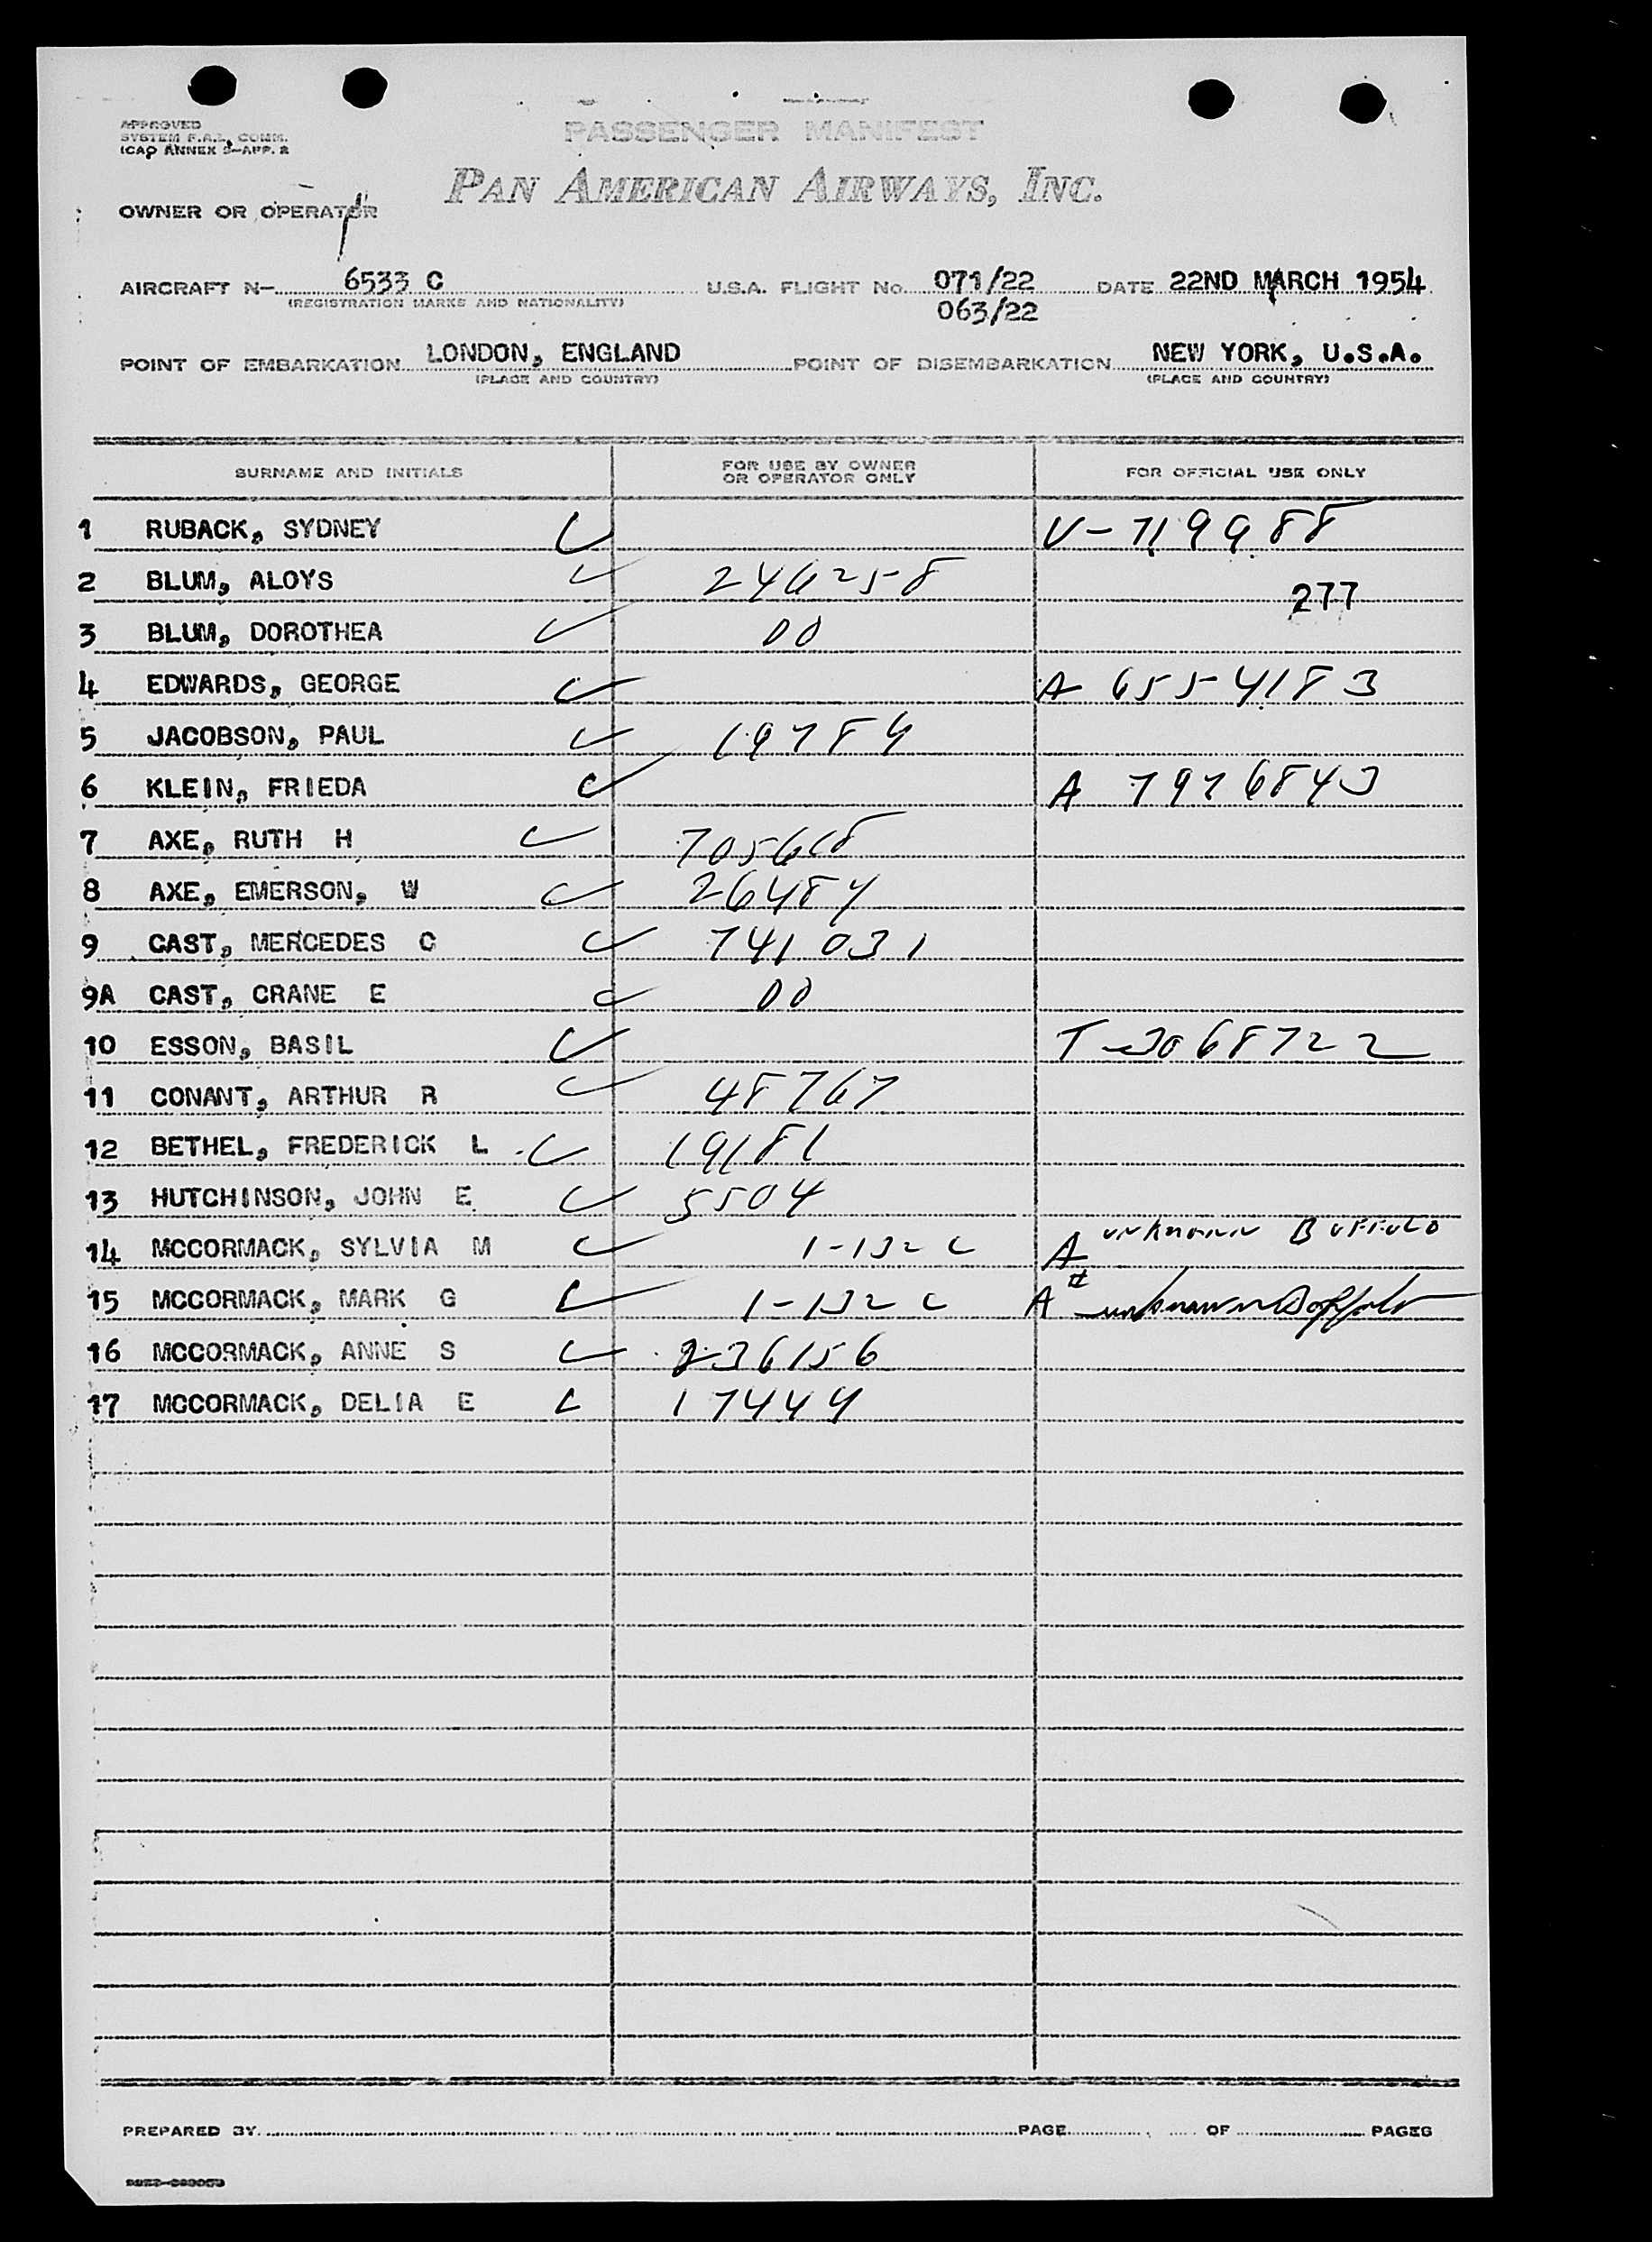 APPROVED
SYSTEM F.A.L. COMM.
ICAO ANNEX 9-APP. 2
PASSENGER MANIFEST
PAN AMERICAN AIRWAYS, INC.
OWNER OR OPERATOR
AIRCRAFT N- 6533 C U.S.A. FLIGHT No. 071/22 DATE 22ND MARCH 1954
(REGISTRATION MARKS AND NATIONALITY)
063/22
POINT OF EMBARKATION LONDON, ENGLAND POINT OF DISEMBARKATION NEW YORK, U.S.A.
(PLACE AND COUNTRY) (PLACE AND COUNTRY)
SURNAME AND INITIALS FOR USE BY OWNER OR OPERATOR ONLY FOR OFFICIAL USE ONLY
1 RUBACK, SYDNEY V-719988
2 BLUM, ALOYS 246258 277
3 BLUM, DOROTHEA DO
4 EDWARDS, GEORGE A 6554183
5 JACOBSON, PAUL 19784
6 KLEIN, FRIEDA A 7976843
7 AXE, RUTH H 705668
8 AXE, EMERSON, W 26484
9 CAST, MERCEDES C 741031
9A CAST, CRANE E DO
10 ESSON, BASIL T-3068722
11 CONANT, ARTHUR R 48767
12 BETHEL, FREDERICK L 19181
13 HUTCHINSON, JOHN E 5504
14 MCCORMACK, SYLVIA M 1-132 C A# unknown BUFFALO
15 MCCORMACK, MARK G 1-132 C A unknown Buffalo
16 MCCORMACK, ANNE S 236156
17 MCCORMACK, DELIA E 17444
PREPARED BY PAGE OF PAGES